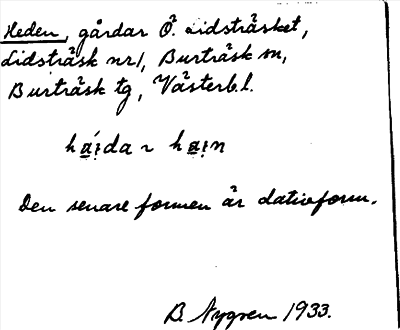 Heden, gårdar Ö. Lidsträsket,
Lidsträsk nr 1, Burträsk sn,
Burträsk tg, Västerb. l.
Den senare formen är dativform.
B. Nygren 1933.